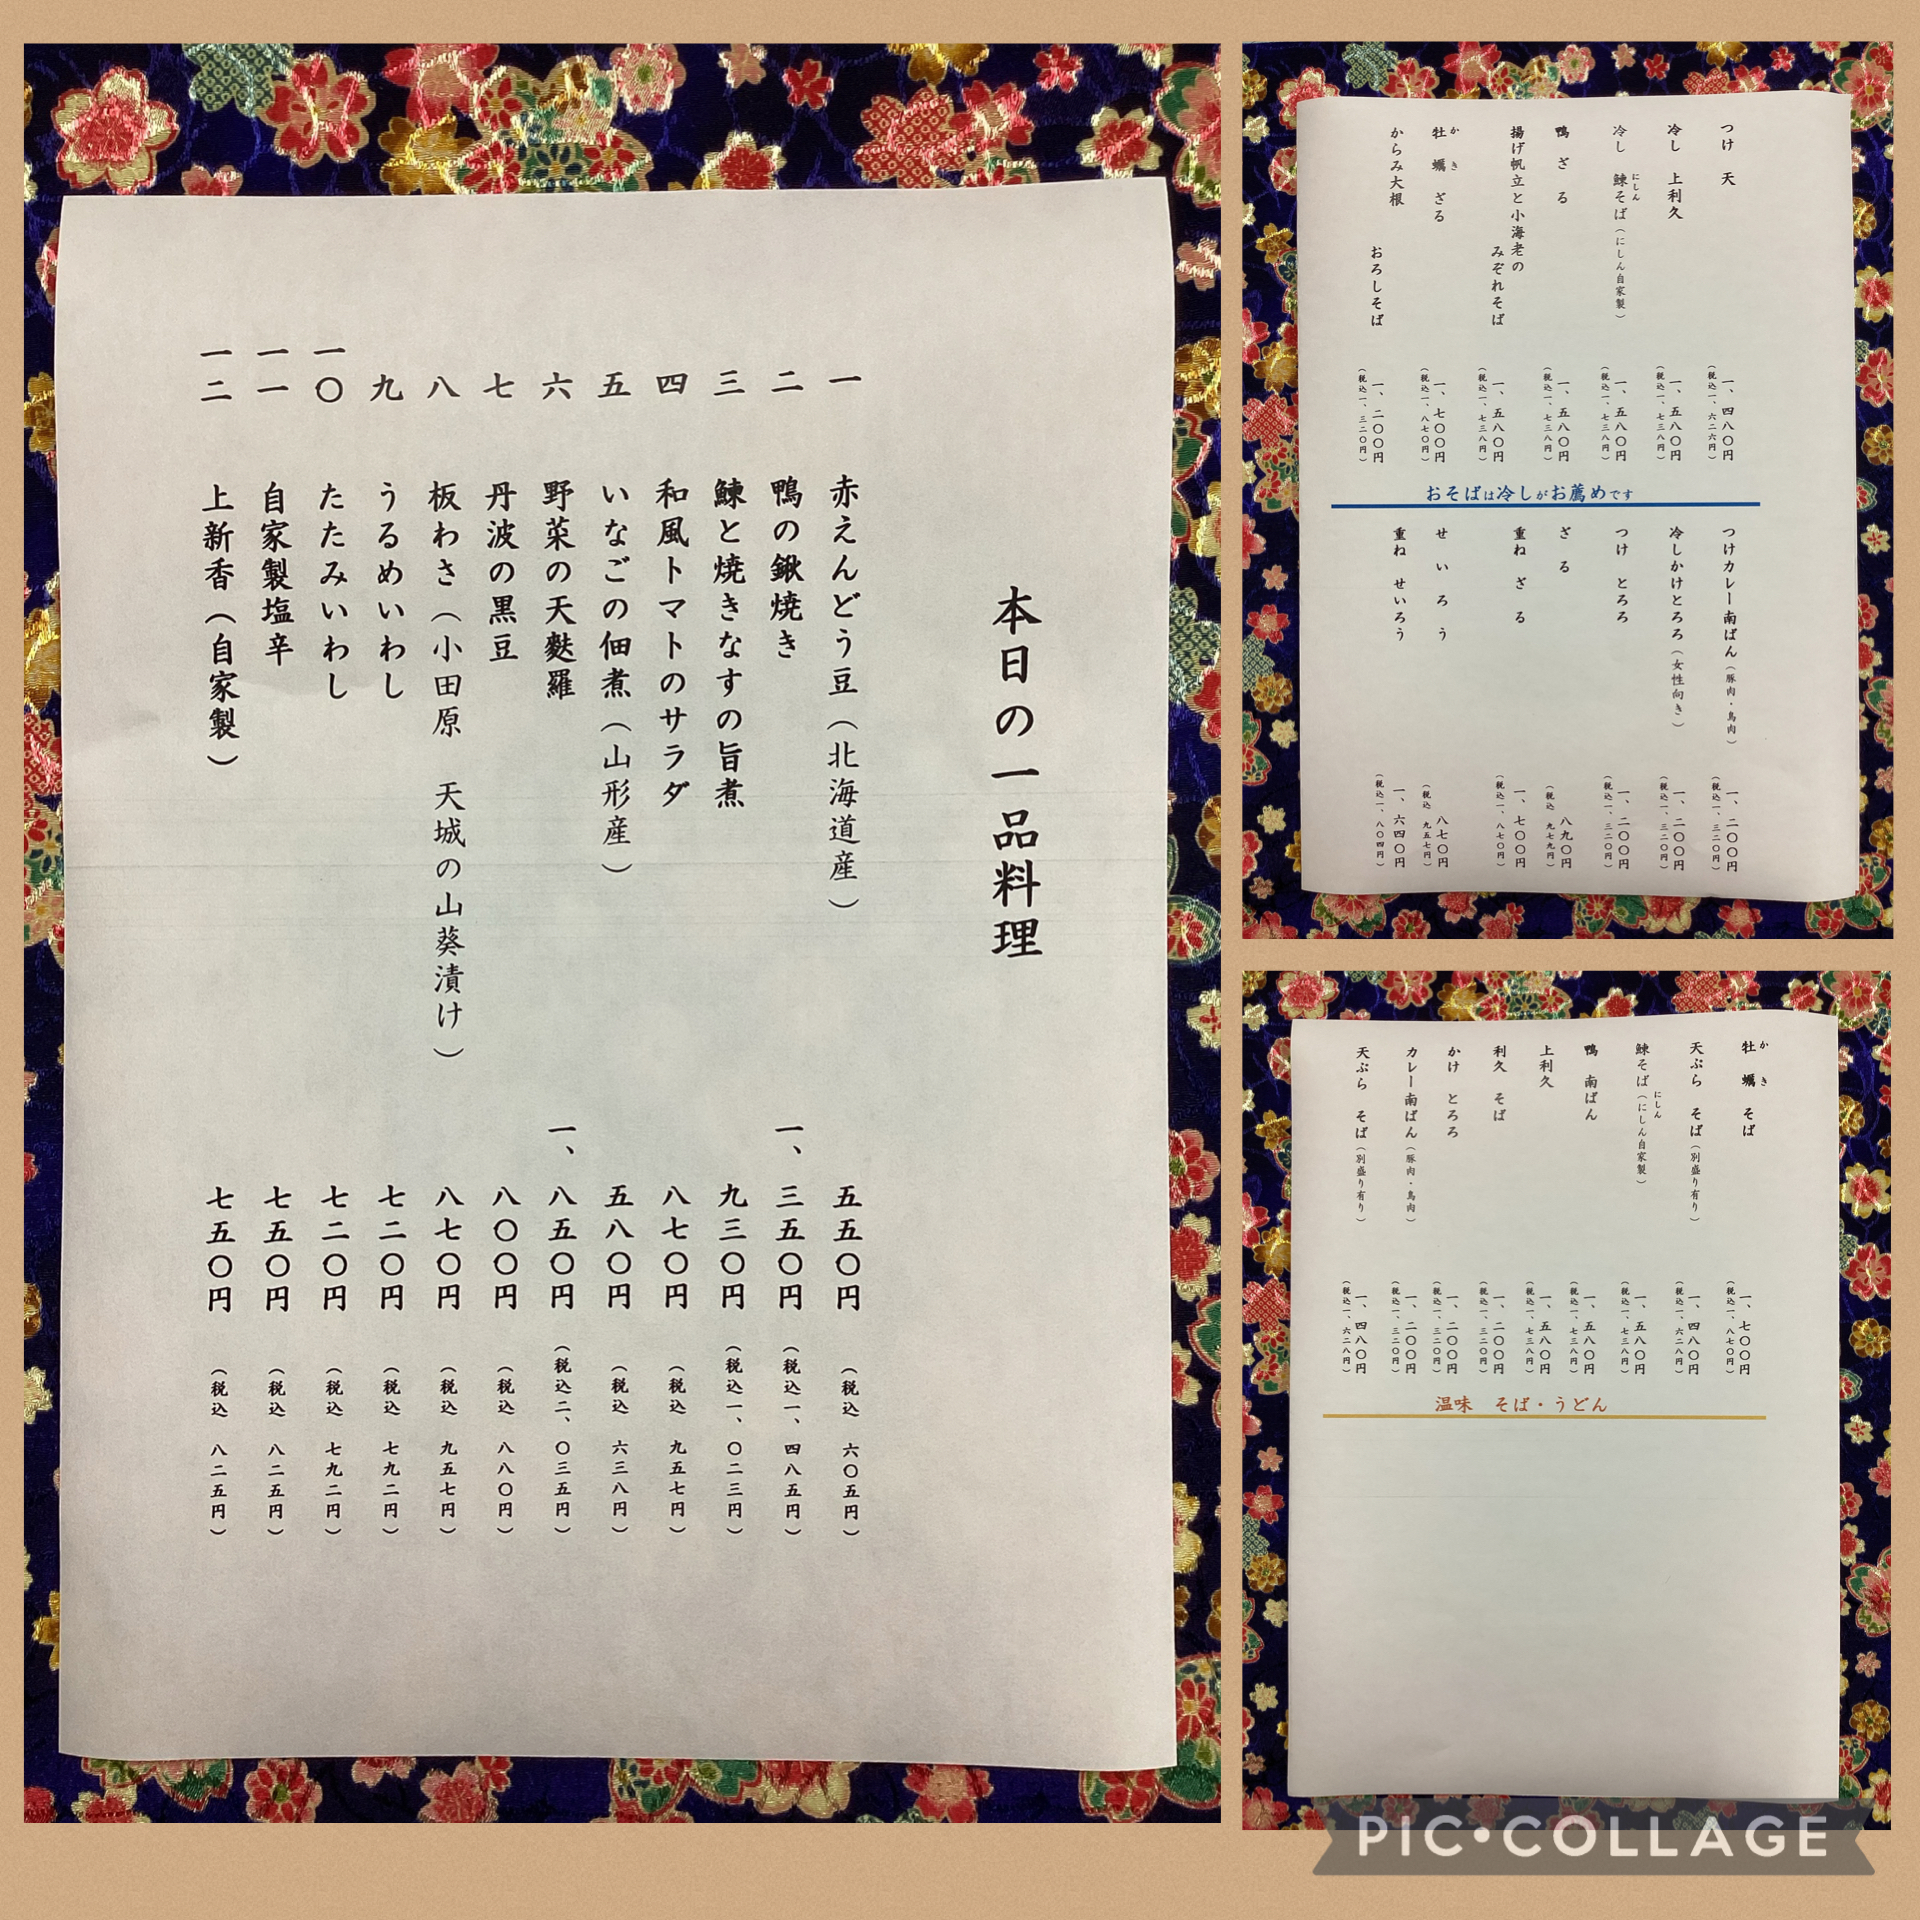 本日の一品料理
一 赤えんどう豆（北海道産） 五五〇円 （税込 六〇五円）
二 鴨の鍬焼き 一、三五〇円 （税込一、四八五円）
三 鰊と焼きなすの旨煮 九三〇円 （税込一、〇二三円）
四 和風トマトのサラダ 八七〇円 （税込 九五七円）
五 いなごの佃煮（山形産） 五八〇円 （税込 六三八円）
六 野菜の天麩羅 一、八五〇円 （税込二、〇三五円）
七 丹波の黒豆 八〇〇円 （税込 八八〇円）
八 板わさ（小田原 天城の山葵漬け） 八七〇円 （税込 九五七円）
九 うるめいわし 七二〇円 （税込 七九二円）
一〇 たたみいわし 七二〇円 （税込 七九二円）
一一 自家製塩辛 七五〇円 （税込 八二五円）
一二 上新香（自家製） 七五〇円 （税込 八二五円）
つけ 天 一、四八〇円 （税込一、六二六円）
冷し 上利久 一、五八〇円 （税込一、七三八円）
冷し 鰊そば（にしん自家製） 一、五八〇円 （税込一、七三八円）
にしん
鴨 ざ る 一、五八〇円 （税込一、七三八円）
揚げ帆立と小海老の
みぞれそば 一、五八〇円 （税込一、七三八円）
かき
牡蠣 ざる 一、七〇〇円 （税込一、八七〇円）
からみ大根
おろしそば 一、二〇〇円 （税込一、三二〇円）
おそばは冷しがお薦めです
つけカレー南ばん（豚肉・鳥肉） 一、二〇〇円 （税込一、三二〇円）
冷しかけとろろ（女性向き） 一、二〇〇円 （税込一、三二〇円）
つけ とろろ 一、二〇〇円 （税込一、三二〇円）
ざ る 八九〇円 （税込 九七九円）
重ね ざ る 一、七〇〇円 （税込一、八七〇円）
せ い ろ う 八七〇円 （税込 九五七円）
重ね せいろう 一、六四〇円 （税込一、八〇四円）
かき
牡蠣 そば 一、七〇〇円 （税込一、八七〇円）
天ぷら そば（別盛り有り） 一、四八〇円 （税込一、六二八円）
にしん
鰊そば（にしん自家製） 一、五八〇円 （税込一、七三八円）
鴨 南ばん 一、五八〇円 （税込一、七三八円）
上利久 一、五八〇円 （税込一、七三八円）
利久 そば 一、二〇〇円 （税込一、三二〇円）
かけ とろろ 一、二〇〇円 （税込一、三二〇円）
カレー南ばん（豚肉・鳥肉） 一、二〇〇円 （税込一、三二〇円）
天ぷら そば（別盛り有り） 一、四八〇円 （税込一、六二八円）
温味 そば・うどん
PIC•COLLAGE